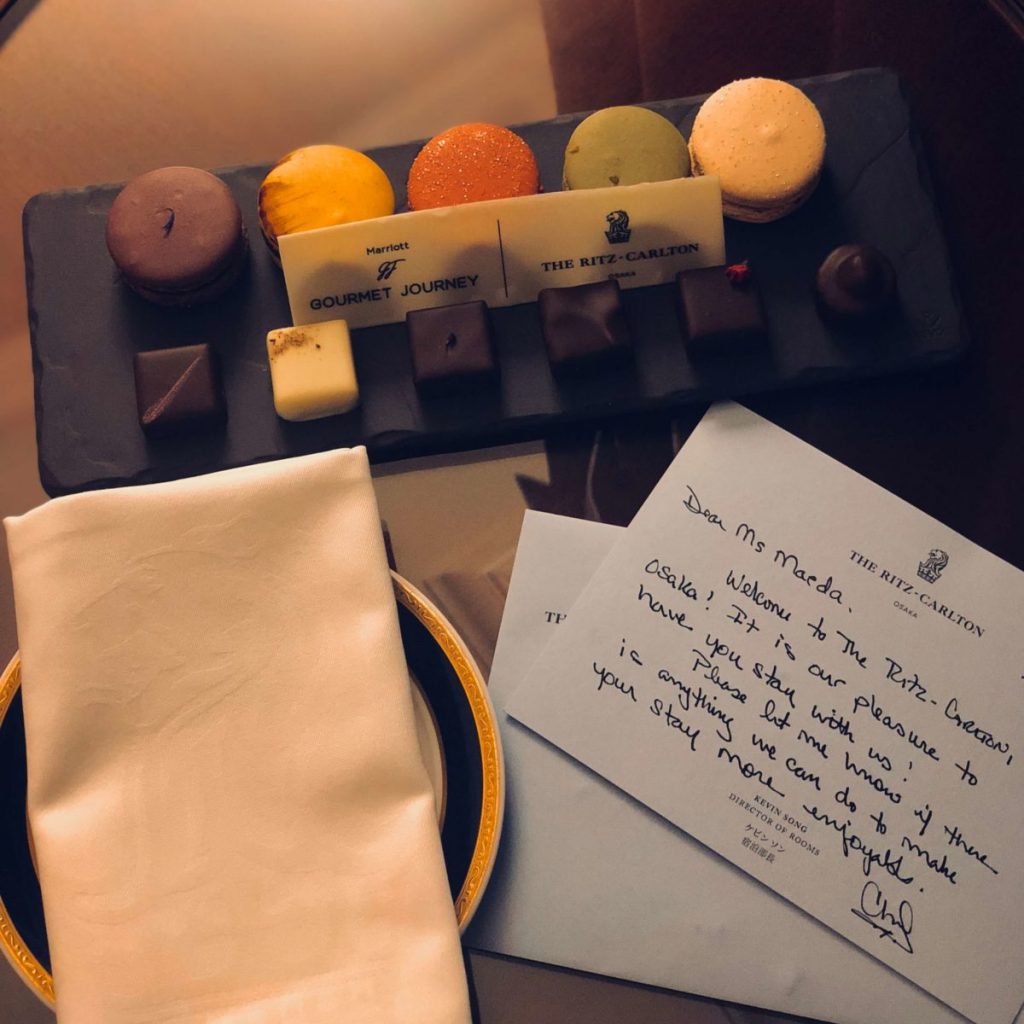 Marriott
GOURMET JOURNEY
THE RITZ-CARLTON
OSAKA
TH
THE RITZ-CARLTON
OSAKA
Dear Ms Maeda.
Welcome to The Ritz-Carlton,
Osaka! It is our pleasure to
have you stay with us!
Please let me know if there
is anything we can do to make
your stay more enjoyable.
KEVIN SONG
DIRECTOR OF ROOMS
ケビン ソン
宿泊部長